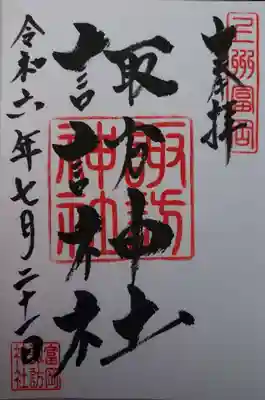 上州富岡
奉拝
諏訪神社
諏訪神社
令和六年七月二十一日
富岡諏訪神社